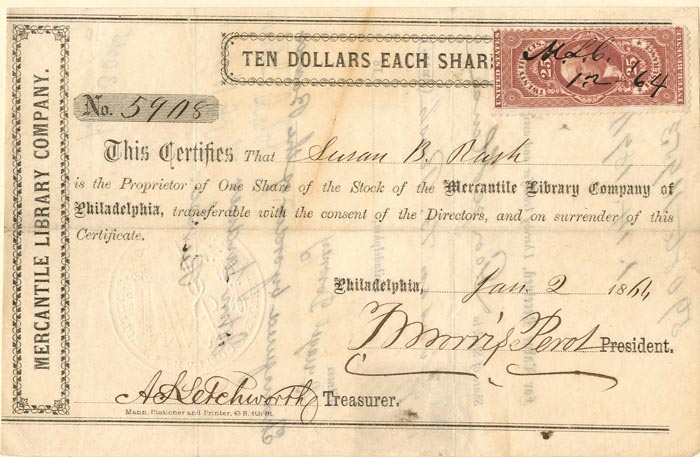 MERCANTILE LIBRARY COMPANY.
TEN DOLLARS EACH SHAR
UNITED STATES
INTER. REVENUE
25 25
M.L.C.
1.2.64
No. 5908
This Certifies That Susan B. Rush
is the Proprietor of One Share of the Stock of the Mercantile Library Company of
Philadelphia, transferable with the consent of the Directors, and on surrender of this
Certificate.
Philadelphia, Jan 2 1864
T Morris Perot President.
A S Letchworth Treasurer.
Mann, Stationer and Printer, 43 S. 4th St.